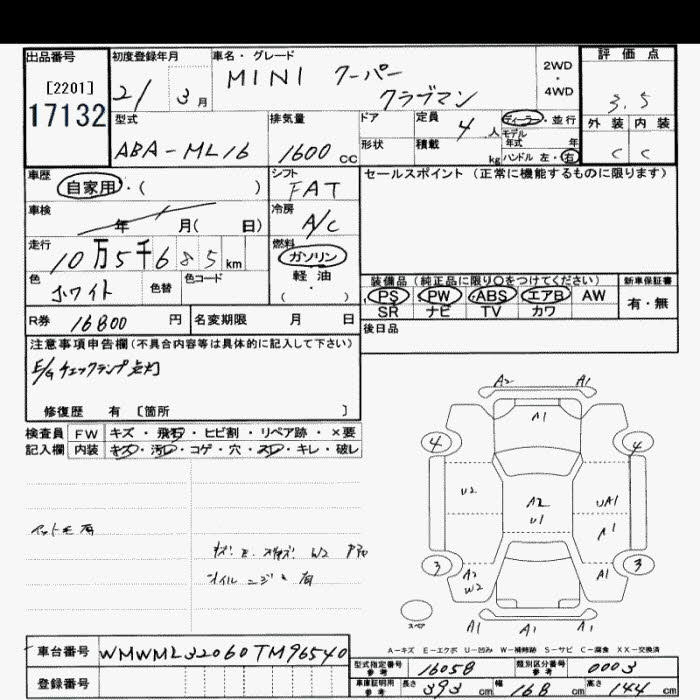 出品番号 初度登録年月 車名・グレード 2WD・4WD 評価点
[2201] 17132 21/3月 MINI クーパー クラブマン 3.5
型式 排気量 ドア 定員 4人 ディーラー・並行 外装 内装
ABA-ML16 1600cc 形状 積載 kg モデル年式 年 C C
ハンドル 左・右
車歴 自家用・( ) シフト FAT セールスポイント(正常に機能するものに限ります)
車検 年 月( 日) 冷房 A/C
走行 10万5千685km 燃料 ガソリン
色 ホワイト 色替 色コード 軽油 ( ・ )
装備品(純正品に限り〇をつけてください) 新車保証書
PS PW ABS エアB AW 有・無
SR ナビ TV カワ
R券 16800円 名変期限 月 日 後日品
注意事項申告欄(不具合内容等は具体的に記入して下さい)
E/gチェックランプ点灯
修復歴 有 [箇所 ]
検査員 FW キズ・飛石・ヒビ割・リペア跡・×要
記入欄 内装 キズ・汚レ・コゲ・穴・スレ・キレ・破レ
A2 A1
A1
4 4
U2 A2 UA1
U1 A1
3 3
A2 A1
W2
スペア A1 A1 A1
有
W2
オイルニジミ有
A-キズ E-エクボ U-凹み W-補修跡 S-サビ C-腐食 XX-交換済
車台番号 WMWML32060TM96540
型式指定番号 参考 16058 類別区分番号 参考 0003
登録番号
車庫証明用 参考 長さ 393cm 幅 168cm 高さ 144cm